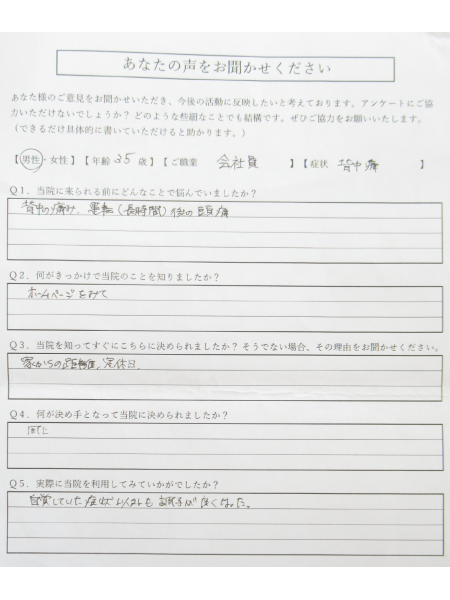 あなたの声をお聞かせください
あなた様のご意見をお聞かせいただき、今後の活動に反映したいと考えております。アンケートにご協
力いただけないでしょうか？どのような些細なことでも結構です。ぜひご協力をお願いいたします。
（できるだけ具体的に書いていただけると助かります。）
【男性・女性】【年齢 35 歳】【ご職業 会社員 】【症状 背中痛 】
Q1．当院に来られる前にどんなことで悩んでいましたか？
背中の痛み、運転（長時間）後の頭痛
Q2．何がきっかけで当院のことを知りましたか？
ホームページをみて
Q3．当院を知ってすぐにこちらに決められましたか？そうでない場合、その理由をお聞かせください。
家からの距離、定休日、
Q4．何が決め手となって当院に決められましたか？
同上
Q5．実際に当院を利用してみていかがでしたか？
自覚していた症状以外も調子が良くなった。